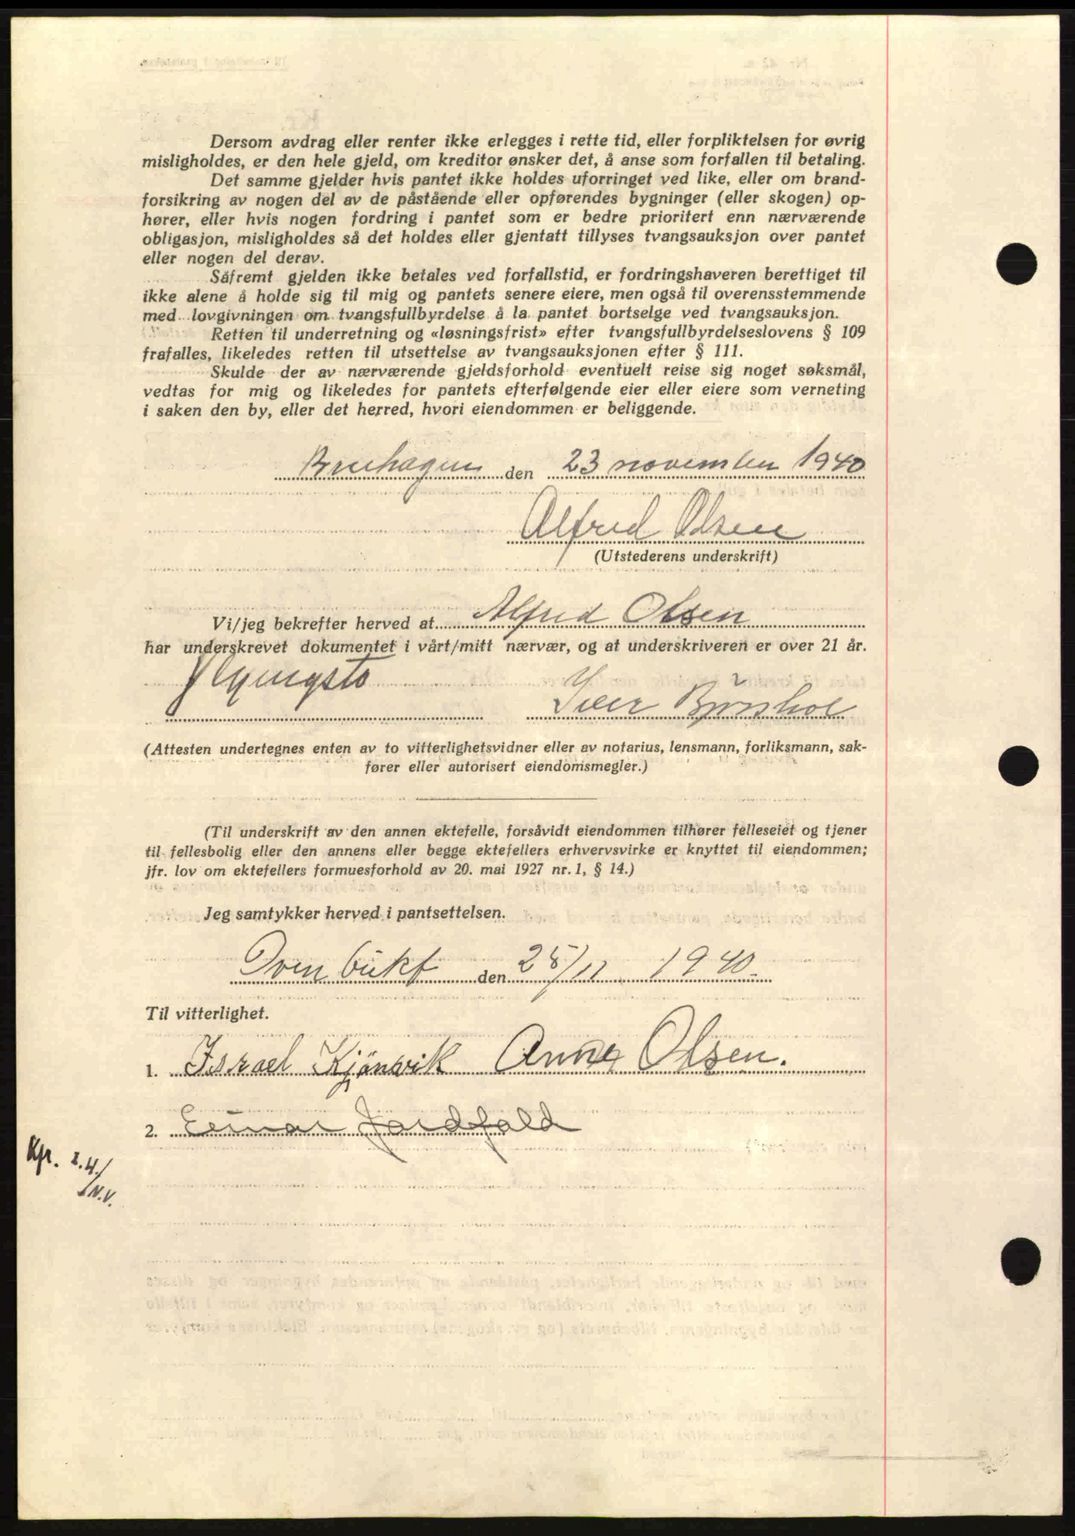 Dersom avdrag eller renter ikke erlegges i rette tid, eller forpliktelsen for øvrig
misligholdes, er den hele gjeld, om kreditor ønsker det, å anse som forfallen til betaling.
Det samme gjelder hvis pantet ikke holdes uforringet ved like, eller om brand-
forsikring av nogen del av de påstående eller opførendes bygninger (eller skogen) op-
hører, eller hvis nogen fordring i pantet som er bedre prioritert enn nærværende
obligasjon, misligholdes så det holdes eller gjentatt tillyses tvangsauksjon over pantet
eller nogen del derav.
Såfremt gjelden ikke betales ved forfallstid, er fordringshaveren berettiget til
ikke alene å holde sig til mig og pantets senere eiere, men også til overensstemmende
med lovgivningen om tvangsfullbyrdelse å la pantet bortselge ved tvangsauksjon.
Retten til underretning og «løsningsfrist» efter tvangsfullbyrdelseslovens § 109
frafalles, likeledes retten til utsettelse av tvangsauksjonen efter § 111.
Skulde der av nærværende gjeldsforhold eventuelt reise sig noget søksmål,
vedtas for mig og likeledes for pantets efterfølgende eier eller eiere som verneting
i saken den by, eller det herred, hvori eiendommen er beliggende.
den 23 november 1940
Alfred Olsen
(Utstederens underskrift)
Vi/jeg bekrefter herved at Alfred Olsen
har underskrevet dokumentet i vårt/mitt nærvær, og at underskriveren er over 21 år.
Iver
(Attesten undertegnes enten av to vitterlighetsvidner eller av notarius, lensmann, forliksmann, sak-
fører eller autorisert eiendomsmegler.)
(Til underskrift av den annen ektefelle, forsåvidt eiendommen tilhører felleseiet og tjener
til fellesbolig eller den annens eller begge ektefellers erhvervsvirke er knyttet til eiendommen;
jfr. lov om ektefellers formuesforhold av 20. mai 1927 nr. 1, § 14.)
Jeg samtykker herved i pantsettelsen.
den 1940.
Til vitterlighet.
1. Israel Kjönsvik Anna Olsen.
2. Einar Jordfald
Kfr. I.4./
/N.V.